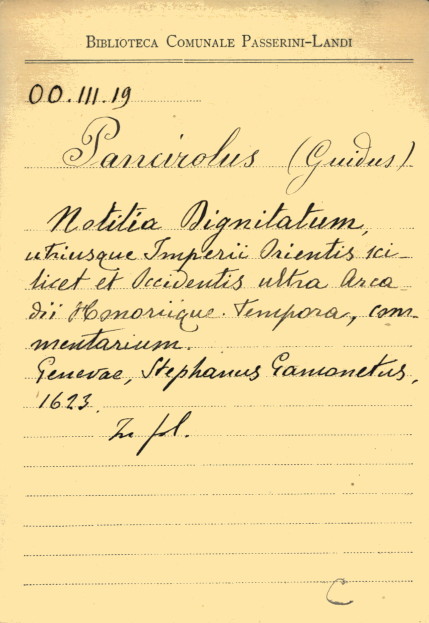 BIBLIOTECA COMUNALE PASSERINI-LANDI
OO.III.19
Pancirolus (Guidus)
Notitia Dignitatum,
utriusque Imperii Orientis sci-
licet et Occidentis ultra Arca
dii Honoriique Tempora, com-
mentarium.
Genevae, Stephanus Gamonetus,
1623.
In fol.
C